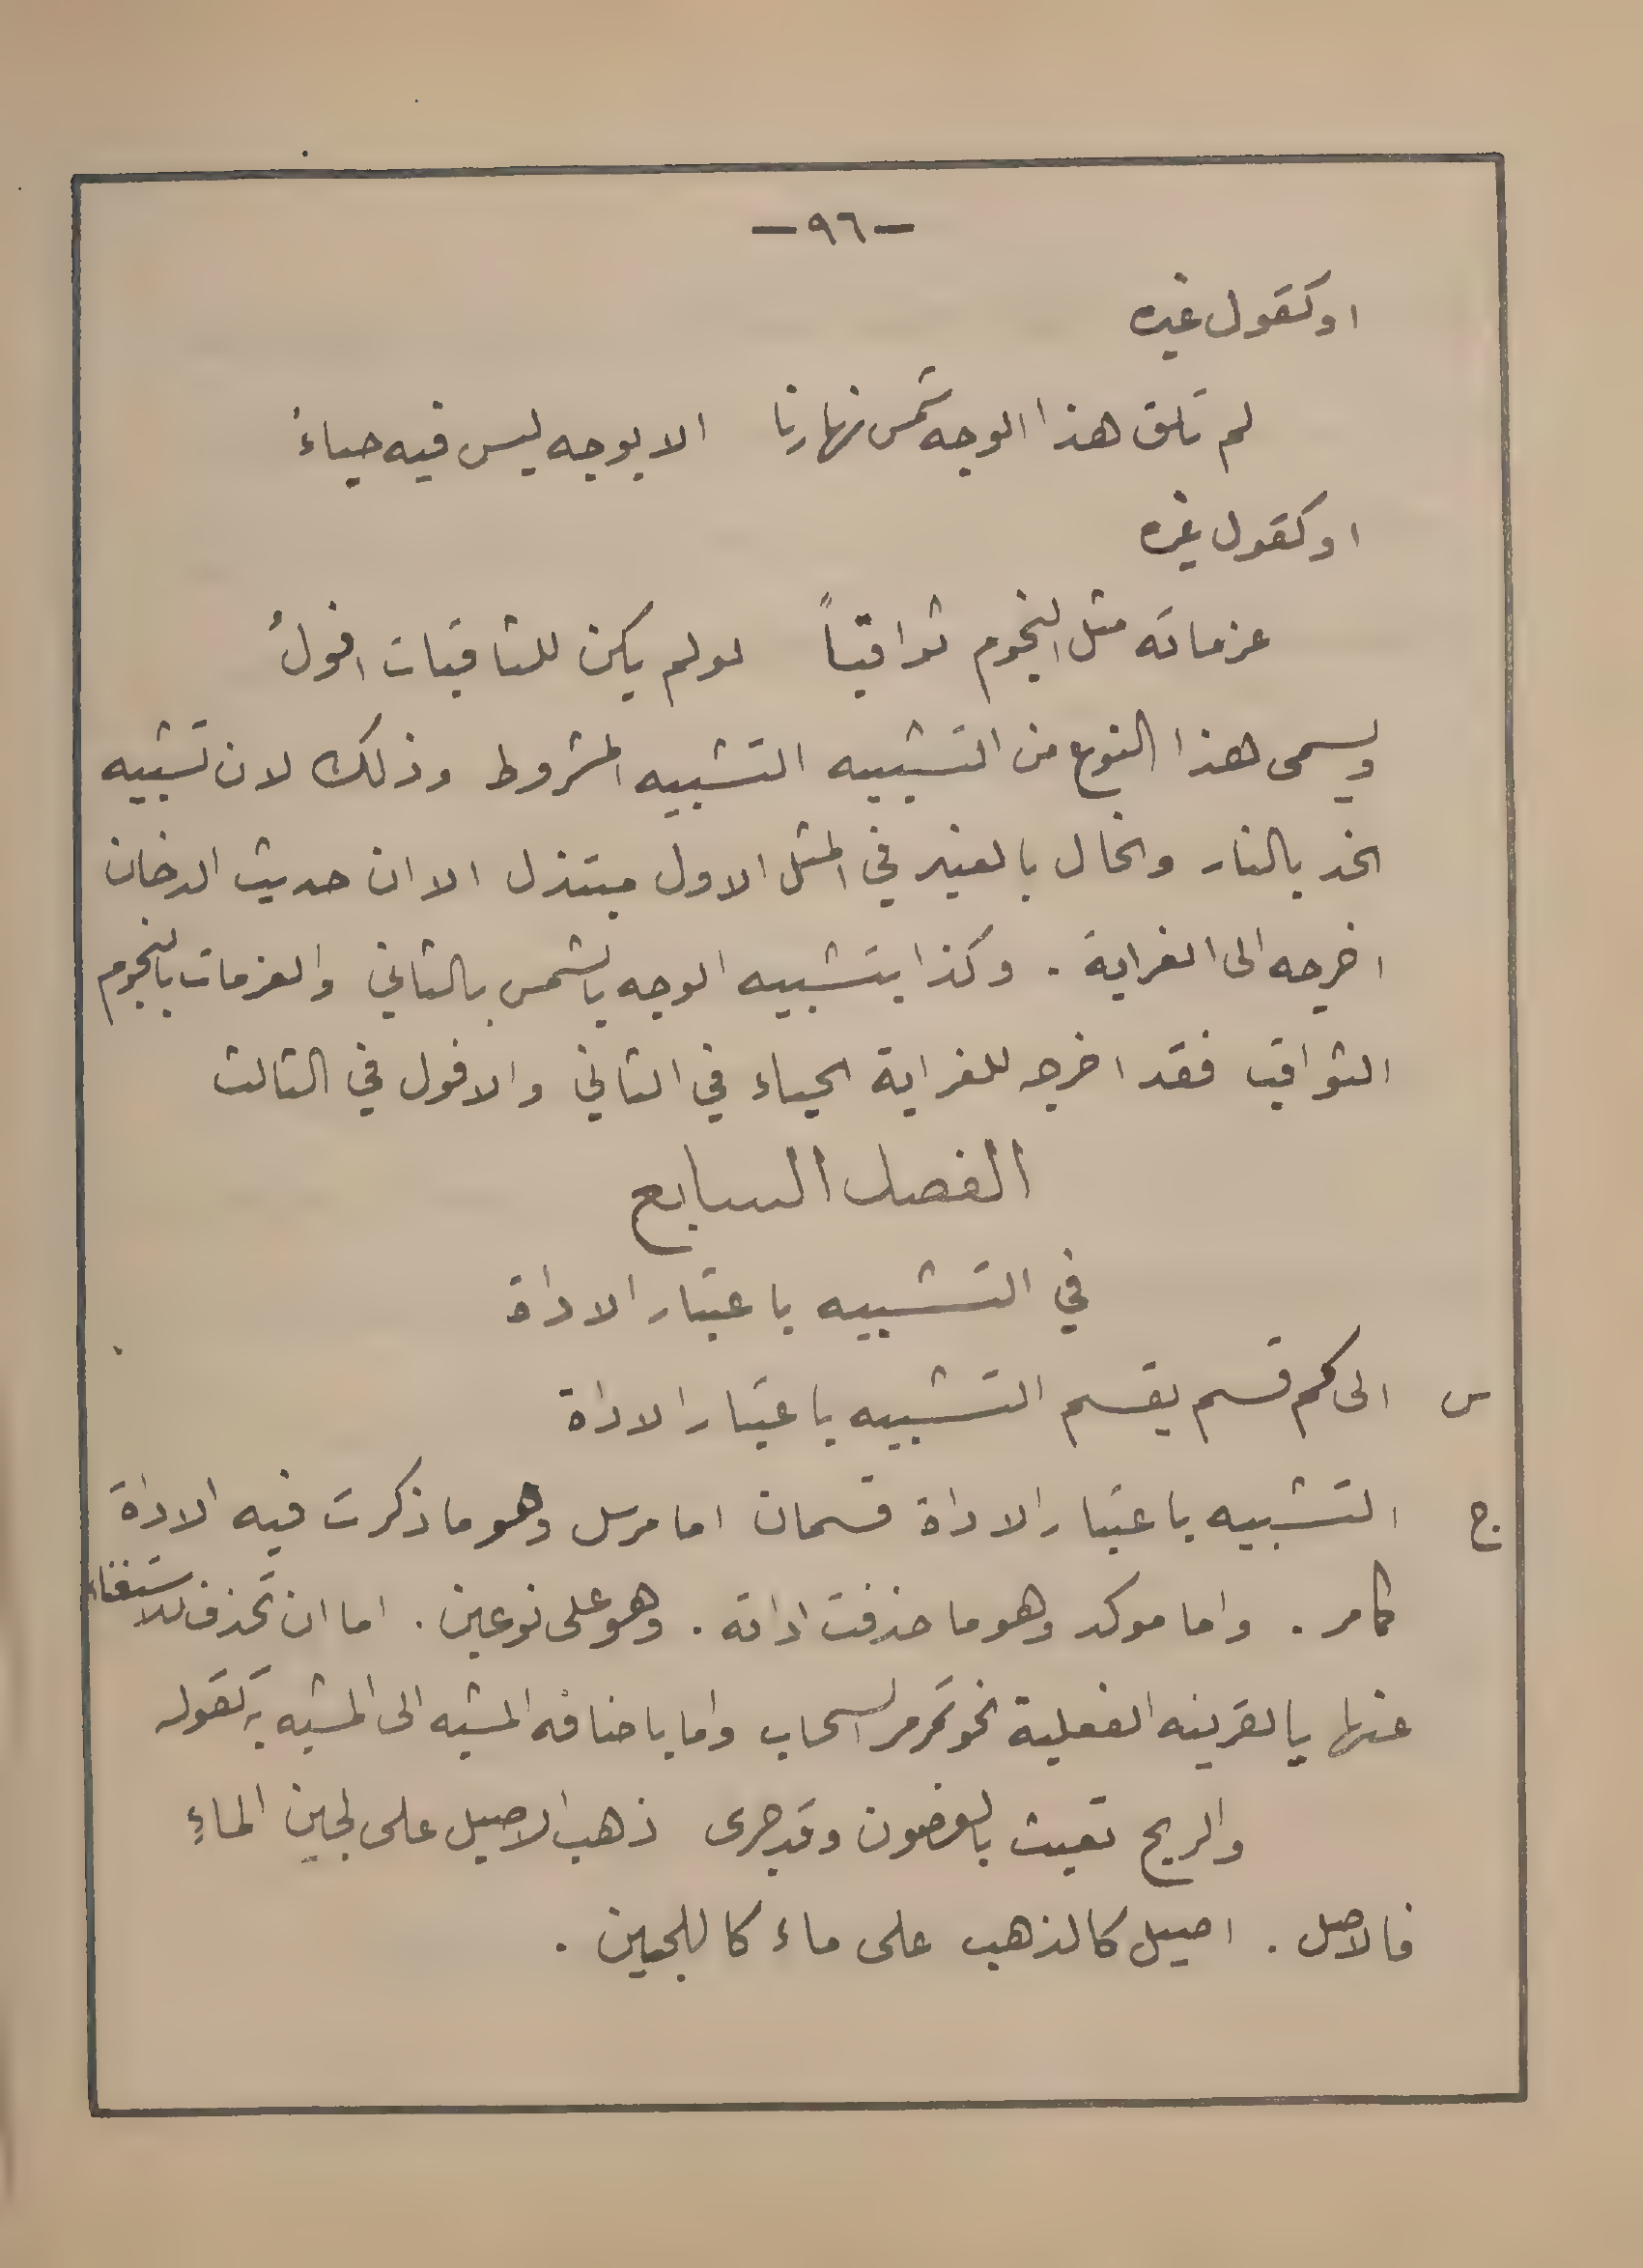 -٩٦-
او كقول غيره
لم تلق هذا الوجه شمس نهارنا الا بوجه ليس فيه حياءُ
او كقول غيره
عزماته مثل النجوم ثواقباً لو لم يكن للثاقبات افولُ
ويسمى هذا النوع من التشبيه التشبيه المشروط وذلك لان تشبيه
الخد بالنار والخال بالعنبر في المثل الاول مبتذل الا ان حديث الدخان
اخرجه الى الغرابة . وكذا بتشبيه الوجه بالشمس بالثاني والعزمات بالنجوم
الثواقب فقد اخرجه للغرابة الحياء في الثاني والافول في الثالث
الفصل السابع
في التشبيه باعتبار الاداة
س الى كم قسم يقسم التشبيه باعتبار الاداة
ج التشبيه باعتبار الاداة قسمان اما مرسل وهو ما ذكرت فيه الاداة
كامر . واما موكد وهو ما حذفت اداته . وهو على نوعين . اما ان تحذف للاستغناء
عنها بالقرينه الفعلية نحو تمر مر السحاب واما باضافه المشبه الى المشبه به كقوله
والريح تعبث بالغصون وقد جرى ذهب الاصيل على لجين الماءِ
فالاصل . اصيل كالذهب على ماء كاللجين .